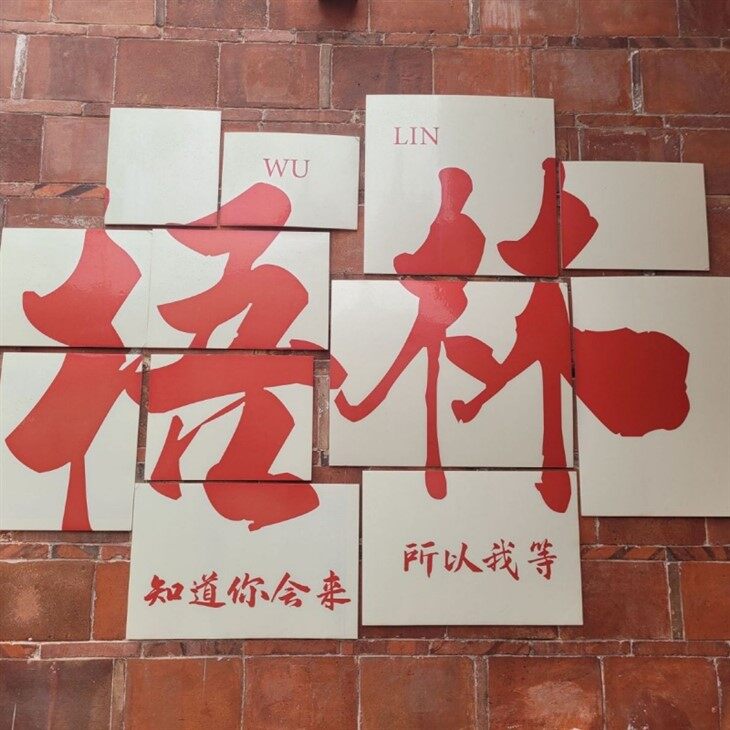 WU
LIN
梧林
知道你会来
所以我等